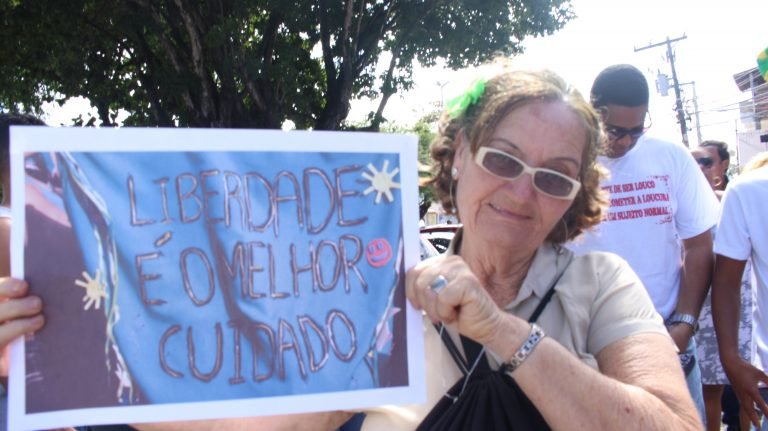 LIBERDADE
É O MELHOR
CUIDADO
TE DE SER LOUCO
COMETER A LOUCURA
UM SUJEITO NORMAL